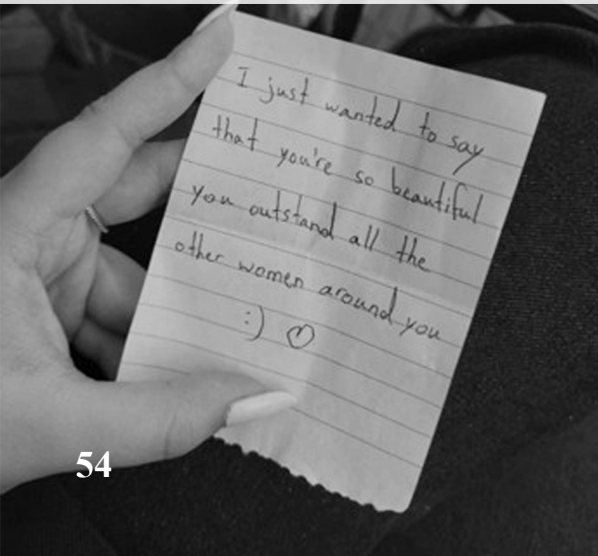 I just wanted to say
that you're so beautiful
you outstand all the
other women around you
:) ♡
54